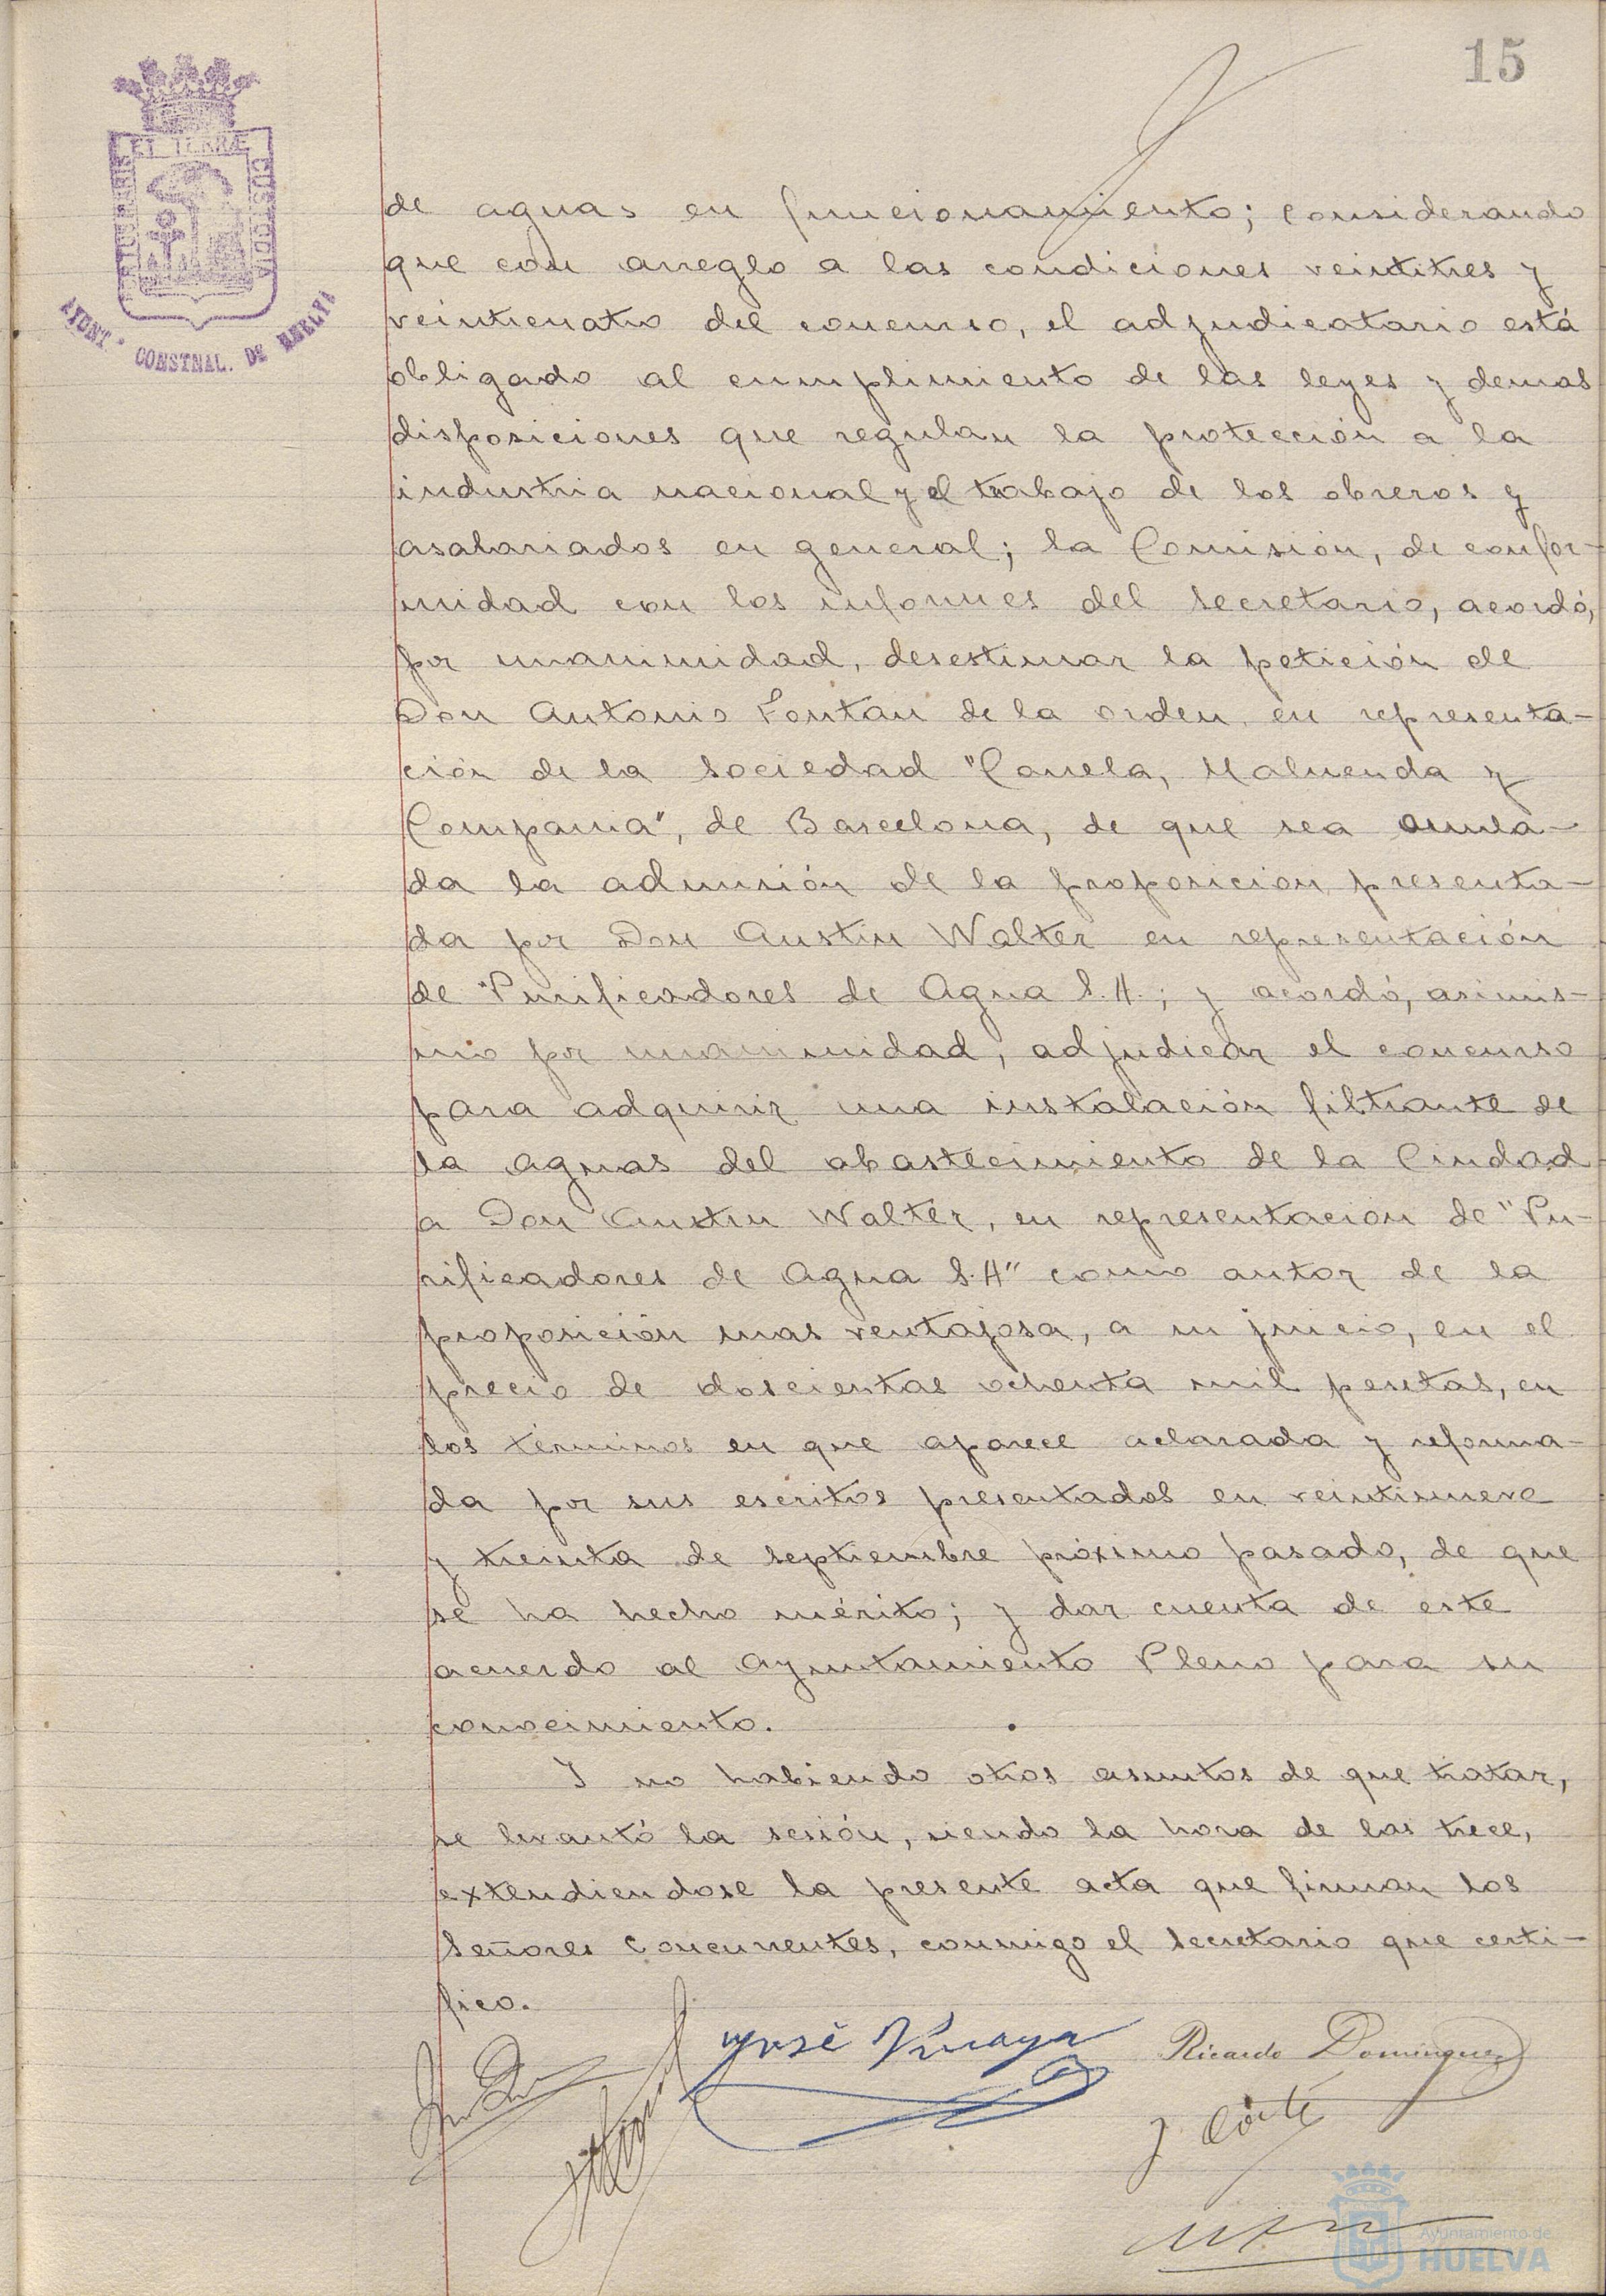 15
ET TERRÆ
PORTUS MARIS
CUSTODIA
AYONT.º CONSTNAL. DE HUELVA
de aguas en funcionamiento; considerando
que con arreglo a las condiciones veintitres y
veinticuatro del concurso, el adjudicatario está
obligado al cumplimiento de las leyes y demas
disposiciones que regulan la protección a la
industria nacional y el trabajo de los obreros y
asalariados en general; la Comisión, de confor-
midad con los informes del secretario, acordó,
por unanimidad, desestimar la petición de
Don Antonio Fontan de la orden, en representa-
ción de la sociedad "Canela, Maluenda y
Compania", de Barcelona, de que sea anula-
da la admisión de la proposicion presenta-
da por Don Austin Walter en representación
de "Purificadores de Agua S.A.; y acordó, asimis-
mo por unanimidad, adjudicar el concurso
para adquirir una instalación filtrante de
la aguas del abastecimiento de la Ciudad
a Don Austin Walter, en representacion de "Pu-
rificadores de Agua S.A" como autor de la
proposición mas ventajosa, a su juicio, en el
precio de doscientas ochenta mil pesetas, en
los términos en que aparece aclarada y reforma-
da por sus escritos presentados en veintinueve
y treinta de septiembre próximo pasado, de que
se ha hecho mérito; y dar cuenta de este
acuerdo al Ayuntamiento Pleno para su
conocimiento.
Y no habiendo otros asuntos de que tratar,
se levantó la sesión, siendo la hora de las trece,
extendiendose la presente acta que firman los
Señores concurrentes, conmigo el secretario que certi-
fico.
José
Ricardo Dominguez
J. Corte
Ayuntamiento de
HUELVA